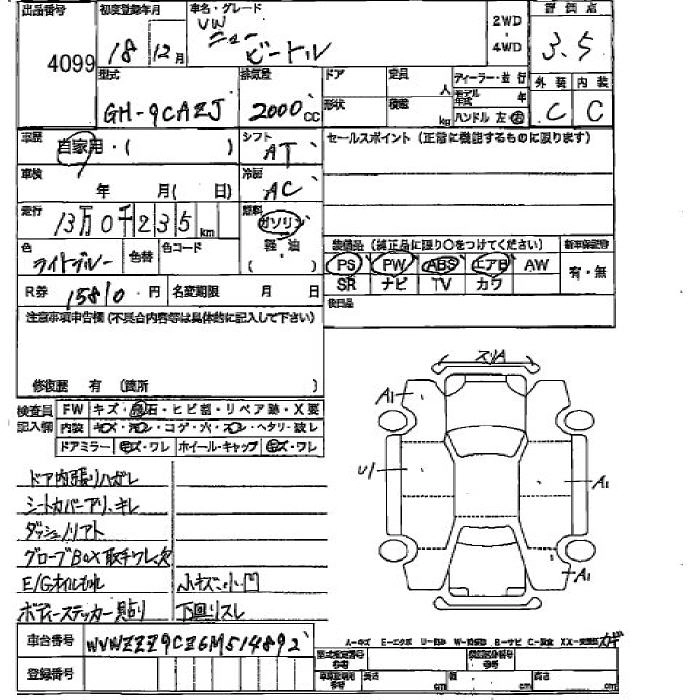 出品番号 初度登録年月 車名・グレード 評価点
4099 18 12月 VW ニュー ビートル 2WD ・ 4WD 3.5
型式 排気量 ドア 定員 人 ディーラー・並行 外装 内装
GH-9CAZJ 2000cc 形状 積載 kg モデル年式 年 C C
ハンドル 左・右
車歴 自家用・( ) シフト AT セールスポイント (正常に機能するものに限ります)
車検 年 月( 日) 冷房 AC
走行 13万0千235km 燃料 ガソリン 軽・油 ( )
装備品 (純正品に限り○をつけてください) 新車保証書
色 ライトブルー 色替 色コード PS PW ABS エアB AW 有・無
R券 15810円 名変期限 月 日 SR ナビ TV カワ
後日品
注意事項申告欄 (不具合内容等は具体的に記入して下さい)
修復歴 有 (箇所 )
検査員記入欄 FW キズ・飛石・ヒビ割・リペア跡・X要
内装 キズ・汚レ・コゲ・穴・スレ・ヘタリ・破レ
ドアミラー キズ・ワレ ホイール・キャップ キズ・ワレ
スリA
A1
U1
A1
A1
ドア内張リハガレ
シートカバーアリ、キレ
ダッシュノリアト
グローブBOX取手ワレ欠
E/Gオイルもれ 小キズ、小凹
ボディーステッカー貼り 下回リスレ
車台番号 WVWZZZ9CZ6M514892
A-キズ E-エクボ
登録番号
型式指定番号 類別区分番号
長さ cm 幅 cm 高さ cm